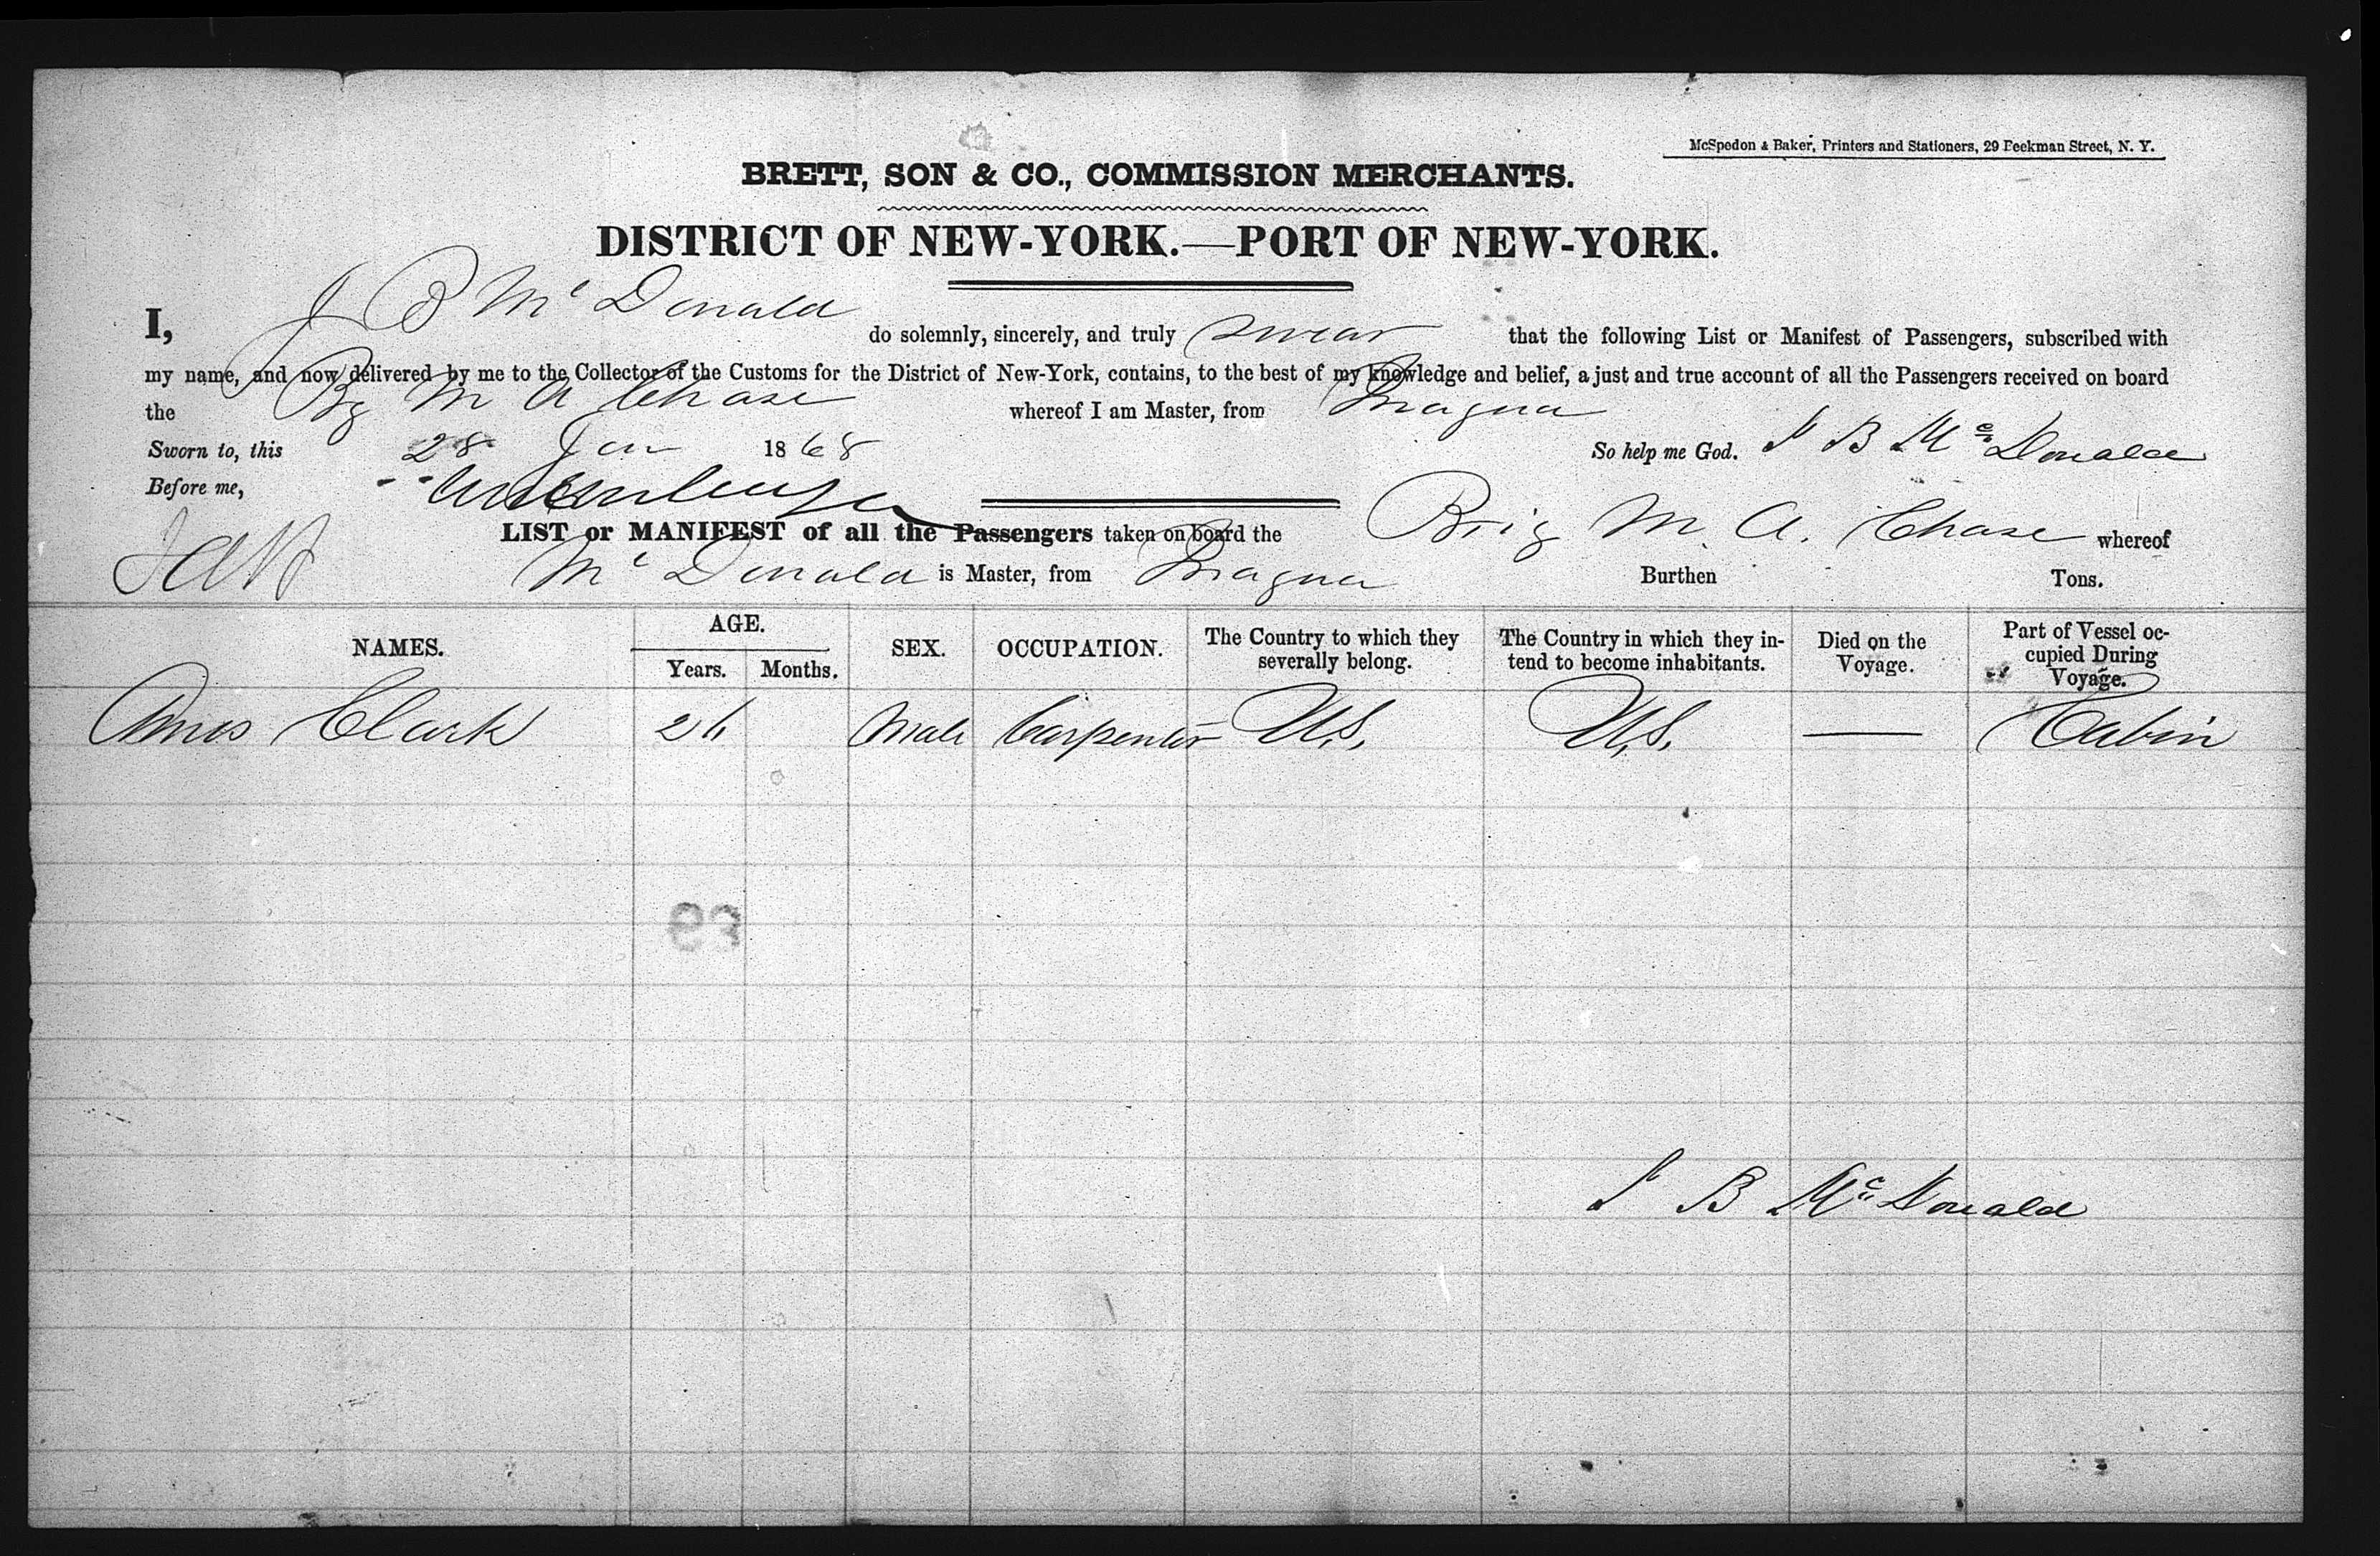 McSpedon & Baker, Printers and Stationers, 29 Beekman Street, N. Y.
BRETT, SON & CO., COMMISSION MERCHANTS.
DISTRICT OF NEW-YORK.—PORT OF NEW-YORK.
I, J B Mc Donald do solemnly, sincerely, and truly swear that the following List or Manifest of Passengers, subscribed with
my name, and now delivered by me to the Collector of the Customs for the District of New-York, contains, to the best of my knowledge and belief, a just and true account of all the Passengers received on board
the Bg M A Chase whereof I am Master, from Inagua
Sworn to, this 28 Jan 1868 So help me God. J B Mc Donald
Before me,
LIST or MANIFEST of all the Passengers taken on board the Brig M. A. Chase whereof
Mc Donald is Master, from Inagua Burthen Tons.
NAMES. AGE. Years. Months. SEX. OCCUPATION. The Country to which they severally belong. The Country in which they intend to become inhabitants. Died on the Voyage. Part of Vessel occupied During Voyage.
Amos Clark 26 Male Carpenter U.S. U.S. — Cabin
J B Mc Donald